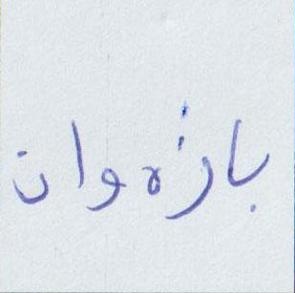 باژەوان